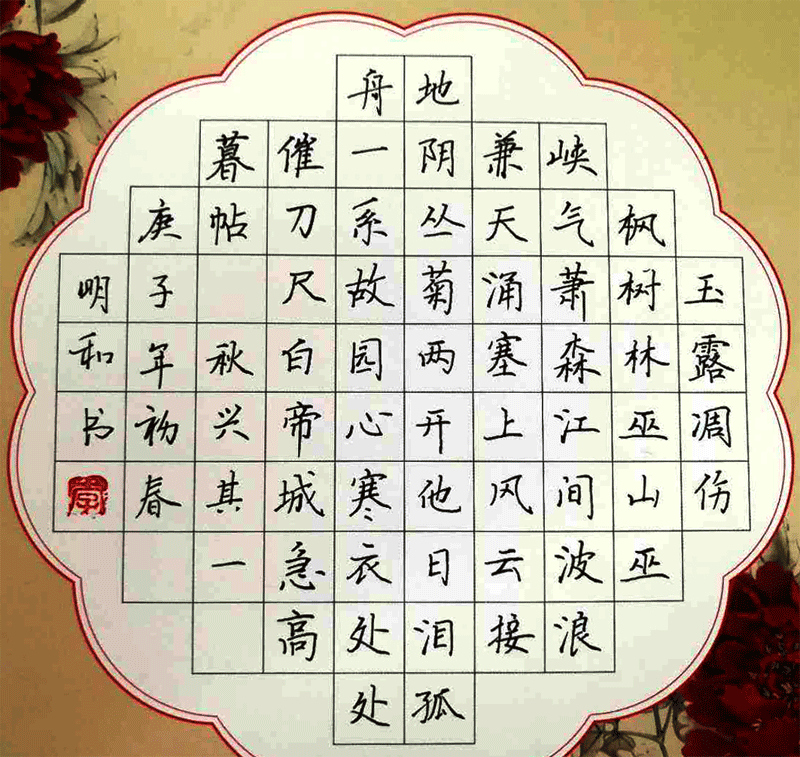 玉露凋伤
枫树林巫山巫
峡气萧森江间波浪
兼天涌塞上风云接
地阴丛菊两开他日泪孤
舟一系故园心寒衣处处
催刀尺白帝城急高
暮帖 秋兴其一
庚子年初春
明和书